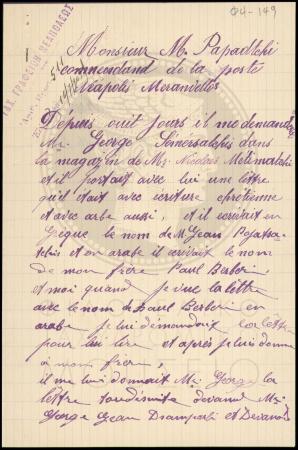 Φ4-149
ΤΑΧ. ΓΡΑΦΕΙΟΝ ΝΕΑΠΟΛΕΩΣ
Monsieur M. Papadaki
commendand de la poste
Néapolis Merambellos
Dépuis ouit jours il me demandai
Mr. George dans
la magazin de Mr. Nicolas
et il portait avec lui une lettre
qu'il etait avec ecriture chrétienne
et avec arbe aussi, et il ecrivait en
Greque le nom de M. Jean
et en arabe il ecrivait le nom
de mon frere Paul Berberi
et moi quand je vue la lettre
avec le nom de Paul Berberi en
arabe je lui demandait la lettre
pour lui lire et après je lui donne
a mon frere,
il me lui donnait Mr. George la
lettre devand Mr.
George Jean et